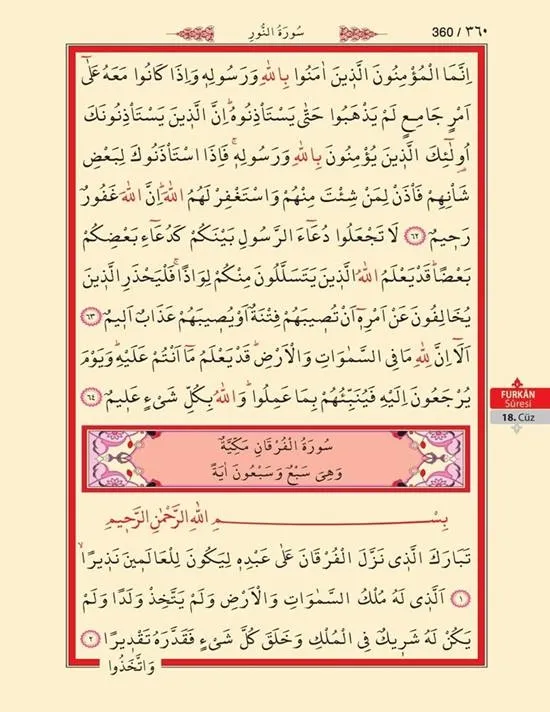 ٣٦٠ / 360
سُورَةُ النُّورِ
اِنَّمَا الْمُؤْمِنُونَ الَّذ۪ينَ اٰمَنُوا بِاللّٰهِ وَرَسُولِه۪ وَاِذَا كَانُوا مَعَهُ عَلٰٓى
اَمْرٍ جَامِعٍ لَمْ يَذْهَبُوا حَتّٰى يَسْتَأْذِنُوهُۜ اِنَّ الَّذ۪ينَ يَسْتَأْذِنُونَكَ
اُو۬لٰٓئِكَ الَّذ۪ينَ يُؤْمِنُونَ بِاللّٰهِ وَرَسُولِه۪ۚ فَاِذَا اسْتَأْذَنُوكَ لِبَعْضِ
شَأْنِهِمْ فَأْذَنْ لِمَنْ شِئْتَ مِنْهُمْ وَاسْتَغْفِرْ لَهُمُ اللّٰهَۜ اِنَّ اللّٰهَ غَفُورٌ
رَح۪يمٌ ﴿٦٢﴾ لَا تَجْعَلُوا دُعَٓاءَ الرَّسُولِ بَيْنَكُمْ كَدُعَٓاءِ بَعْضِكُمْ
بَعْضًاۜ قَدْ يَعْلَمُ اللّٰهُ الَّذ۪ينَ يَتَسَلَّلُونَ مِنْكُمْ لِوَاذًاۚ فَلْيَحْذَرِ الَّذ۪ينَ
يُخَالِفُونَ عَنْ اَمْرِه۪ٓ اَنْ تُص۪يبَهُمْ فِتْنَةٌ اَوْ يُص۪يبَهُمْ عَذَابٌ اَل۪يمٌ ﴿٦٣﴾
اَلَٓا اِنَّ لِلّٰهِ مَا فِي السَّمٰوَاتِ وَالْاَرْضِۜ قَدْ يَعْلَمُ مَٓا اَنْتُمْ عَلَيْهِۜ وَيَوْمَ
يُرْجَعُونَ اِلَيْهِ فَيُنَبِّئُهُمْ بِمَا عَمِلُواۜ وَاللّٰهُ بِكُلِّ شَيْءٍ عَل۪يمٌ ﴿٦٤﴾
FURKÂN
Sûresi
18. Cüz
سُورَةُ الْفُرْقَانِ مَكِّيَّةٌ
وَهِيَ سَبْعٌ وَسَبْعُونَ اٰيَةً
بِسْمِ اللّٰهِ الرَّحْمٰنِ الرَّح۪يمِ
تَبَارَكَ الَّذ۪ي نَزَّلَ الْفُرْقَانَ عَلٰى عَبْدِه۪ لِيَكُونَ لِلْعَالَم۪ينَ نَذ۪يرًاۙ
﴿١﴾ اَلَّذ۪ي لَهُ مُلْكُ السَّمٰوَاتِ وَالْاَرْضِ وَلَمْ يَتَّخِذْ وَلَدًا وَلَمْ
يَكُنْ لَهُ شَر۪يكٌ فِي الْمُلْكِ وَخَلَقَ كُلَّ شَيْءٍ فَقَدَّرَهُ تَقْد۪يرًا ﴿٢﴾
وَاتَّخَذُوا